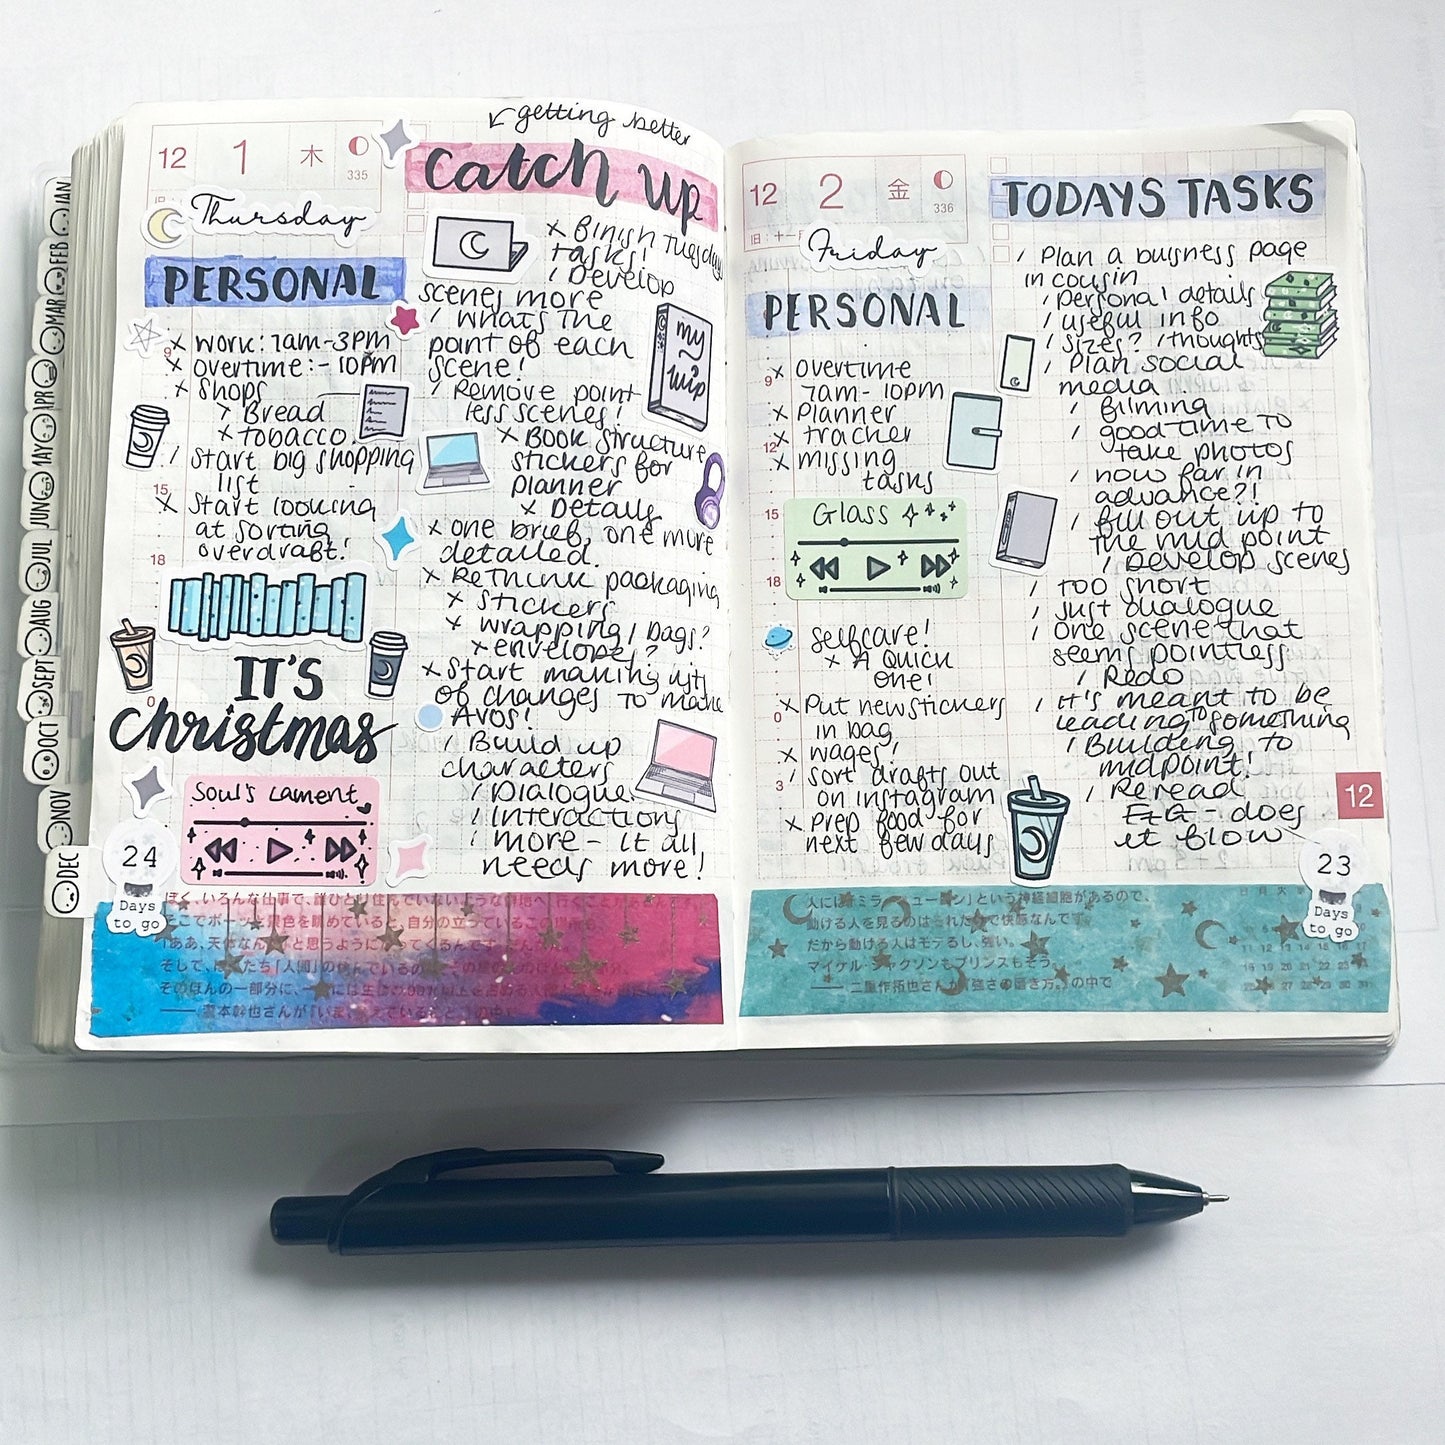 JAN
FEB
MAR
APR
MAY
JUN
JUL
AUG
SEPT
OCT
NOV
DEC
12 1 木
335
Thursday
PERSONAL
9
x work: 7am-3pm
x overtime:- 10pm
x shops
x Bread
x tobacco.
12
/ start big shopping
list
15
x start looking
at sorting
overdraft!
18
IT'S
0
christmas
Soul's Lament
24
Days
to go
getting better
catch up
x Finish Tuesday
tasks!
/ Develop
scenes more
/ whats the
point of each
scene!
/ Remove point
less scenes!
my
wip
x Book structure
stickers for
planner
x Details
x one brief, one more
detailed.
x Rethink packaging
x stickers
x wrapping/bags?
x envelopes?
x start making list
of changes to make
Avos!
/ Build up
characters
/ Dialogue
/ interactions
/ more - it all
needs more!
12 2 金
336
旧:十一月
Friday
PERSONAL
9
x overtime
7am-10pm
x Planner
x tracker
12
x missing
tasks
15
Glass
18
selfcare!
x A quick
one!
0
x Put new stickers
in bag
x wages!
3
/ sort drafts out
on instagram
x prep food for
next few days
TODAYS TASKS
/ Plan a buisness page
in cousin
/ personal details
/ useful info
/ sizes? / thoughts
/ Plan social
media
/ filming
/ good time to
take photos
/ how far in
advance?!
/ fill out up to
the mid point
/ Develop scenes
/ too short
/ just dialogue
/ one scene that
seems pointless
/ Redo
/ it's meant to be
leading to something
/ Building to
midpoint!
/ Reread
- does
it flow
12
23
Days
to go
人には「ミラーニューロン」という神経細胞があるので、
動ける人を見るのは
だから動ける人はモテるし、強い。
マイケル・ジャクソンもプリンスもそう。
——二重作拓也さんが『強さの磨き方。』の中で